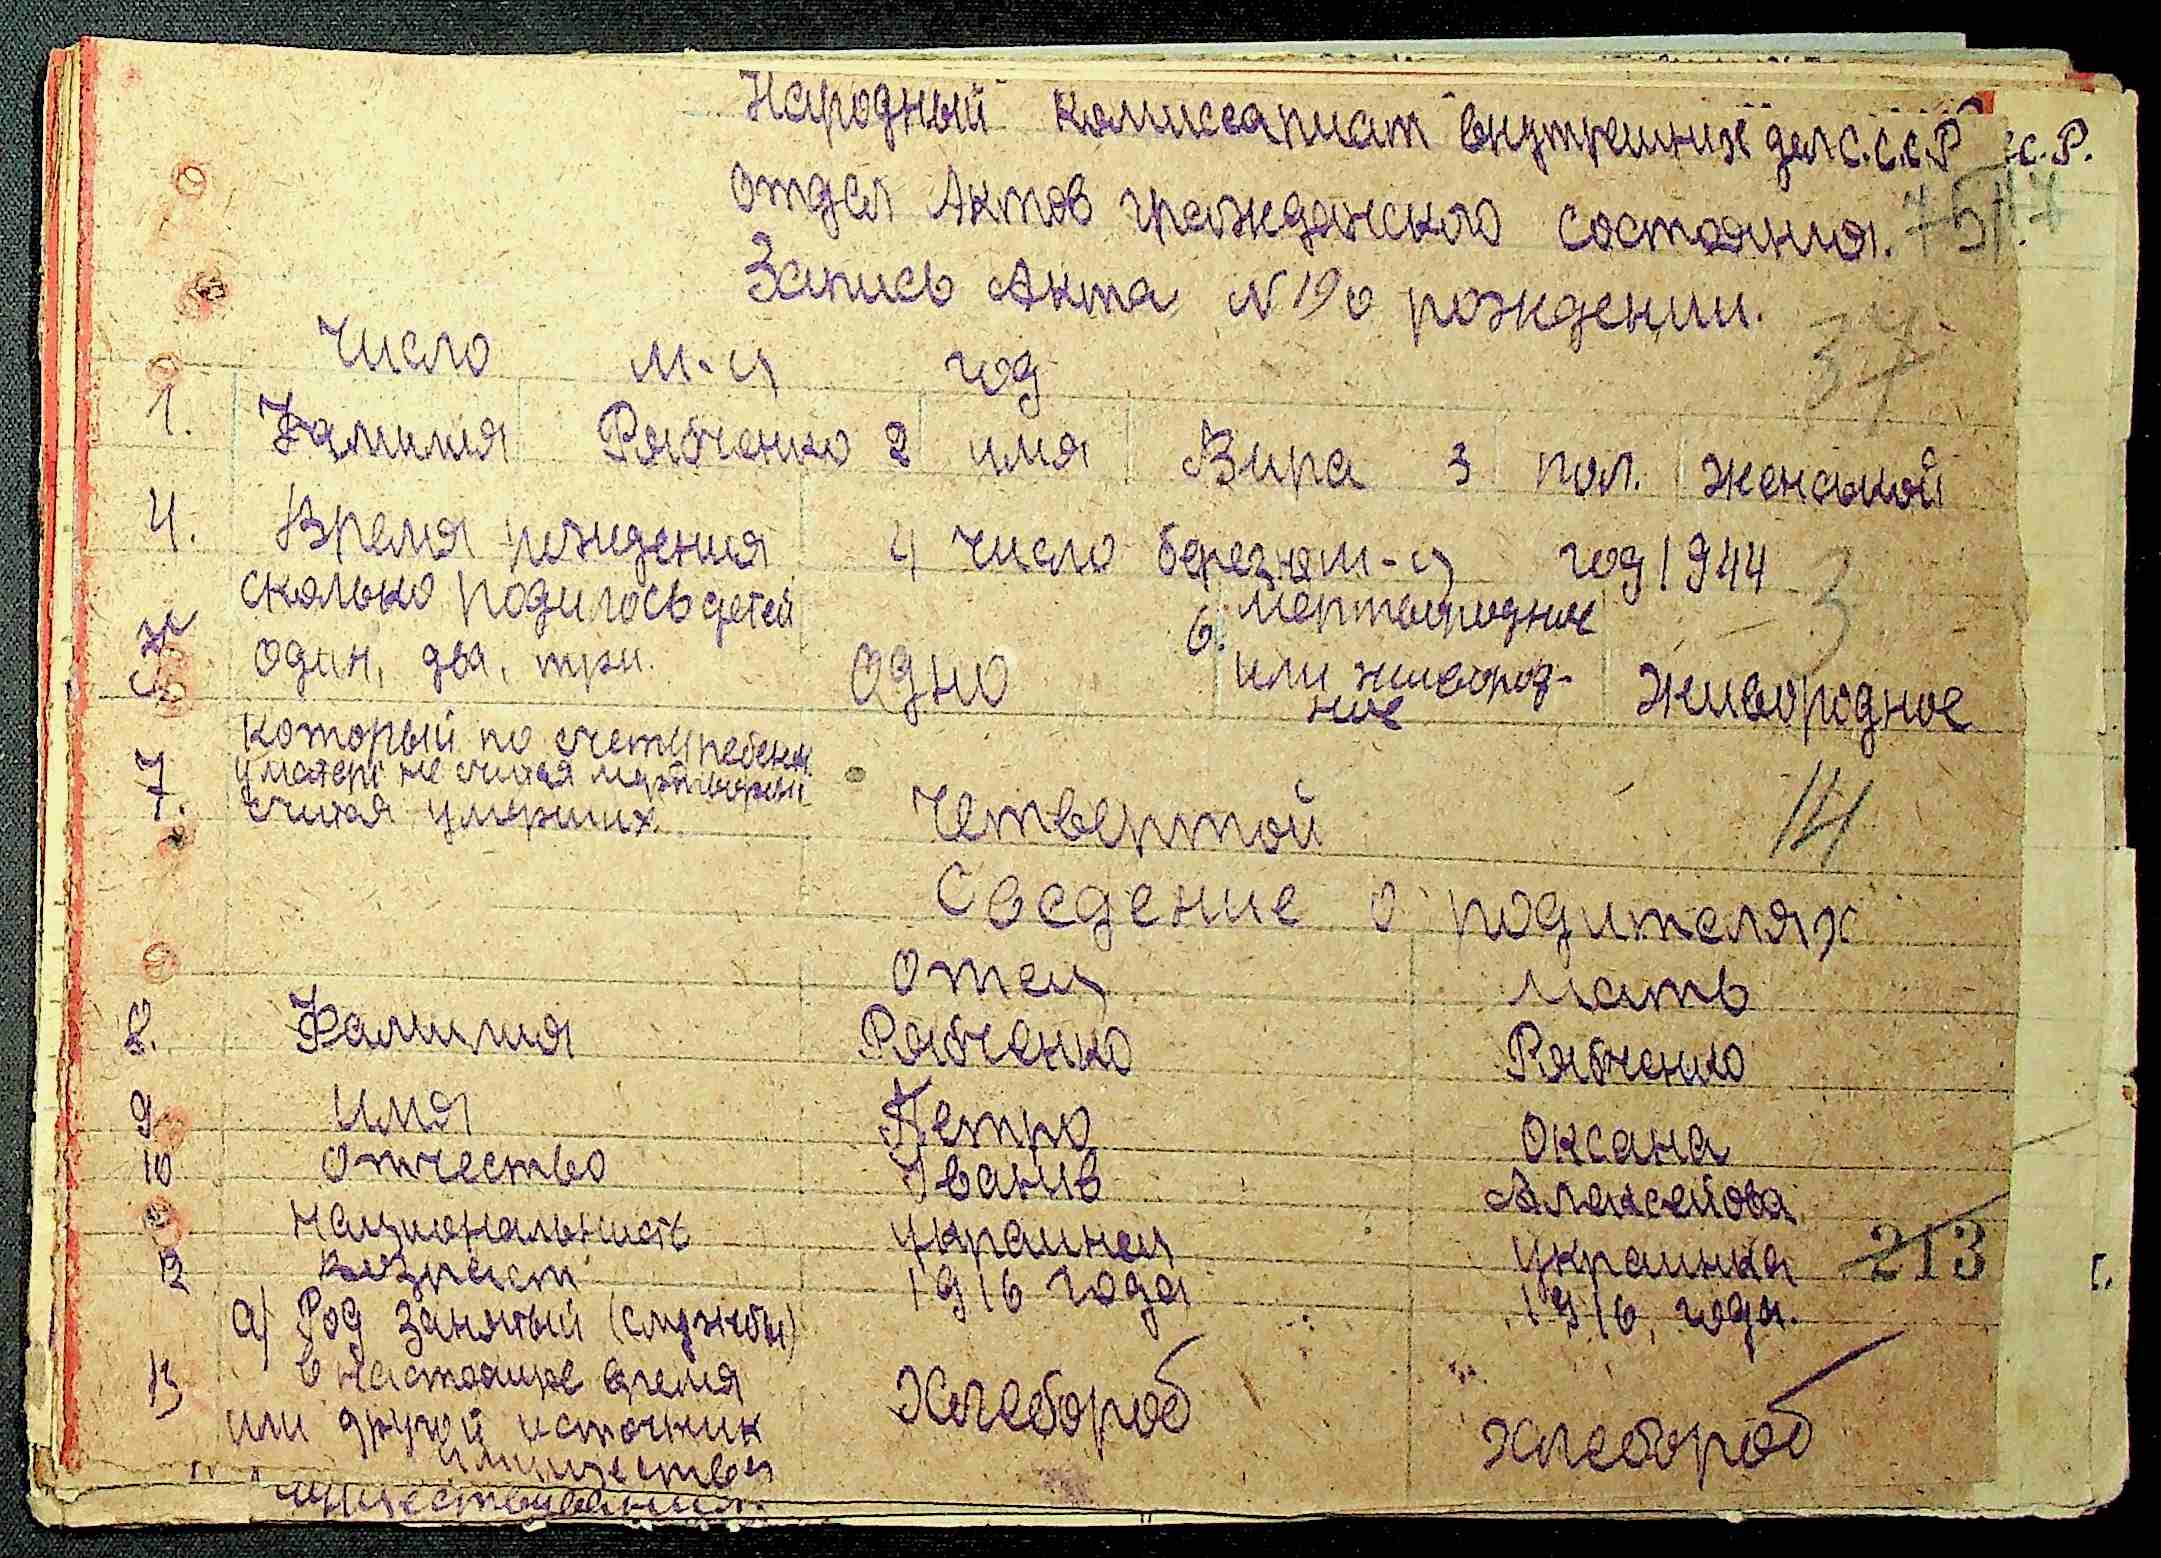 Народный Комиссариат внутрених дел С.С.С.Р С.Р.
Отдел Актов гражданского состояния.
Запись Акта N 19 о рождении.
37
Число м-ц год
1. Фамилия Рябченко 2 имя Вира 3 пол. женськой
4. Время рождения 4 число березня м-ц год 1944
5 сколько родилось детей один, два, три. одно 6. мертвородное или живород-ное живородное
3
7. который по счету ребенк. у матери не считая мертворожд. считая умерших. Четвертой
14
Сведение о родителях
Отец мать
8. Фамилия Рябченко Рябченко
9 имя Петро Оксана
10 отчество Іванив Алексейова
национальность украинец украинка
213
12 возраст 1916 года 1916 года.
13 а) Род занятый (службы) в настоящее время или другой источник Хлебороб хлебороб
существования.